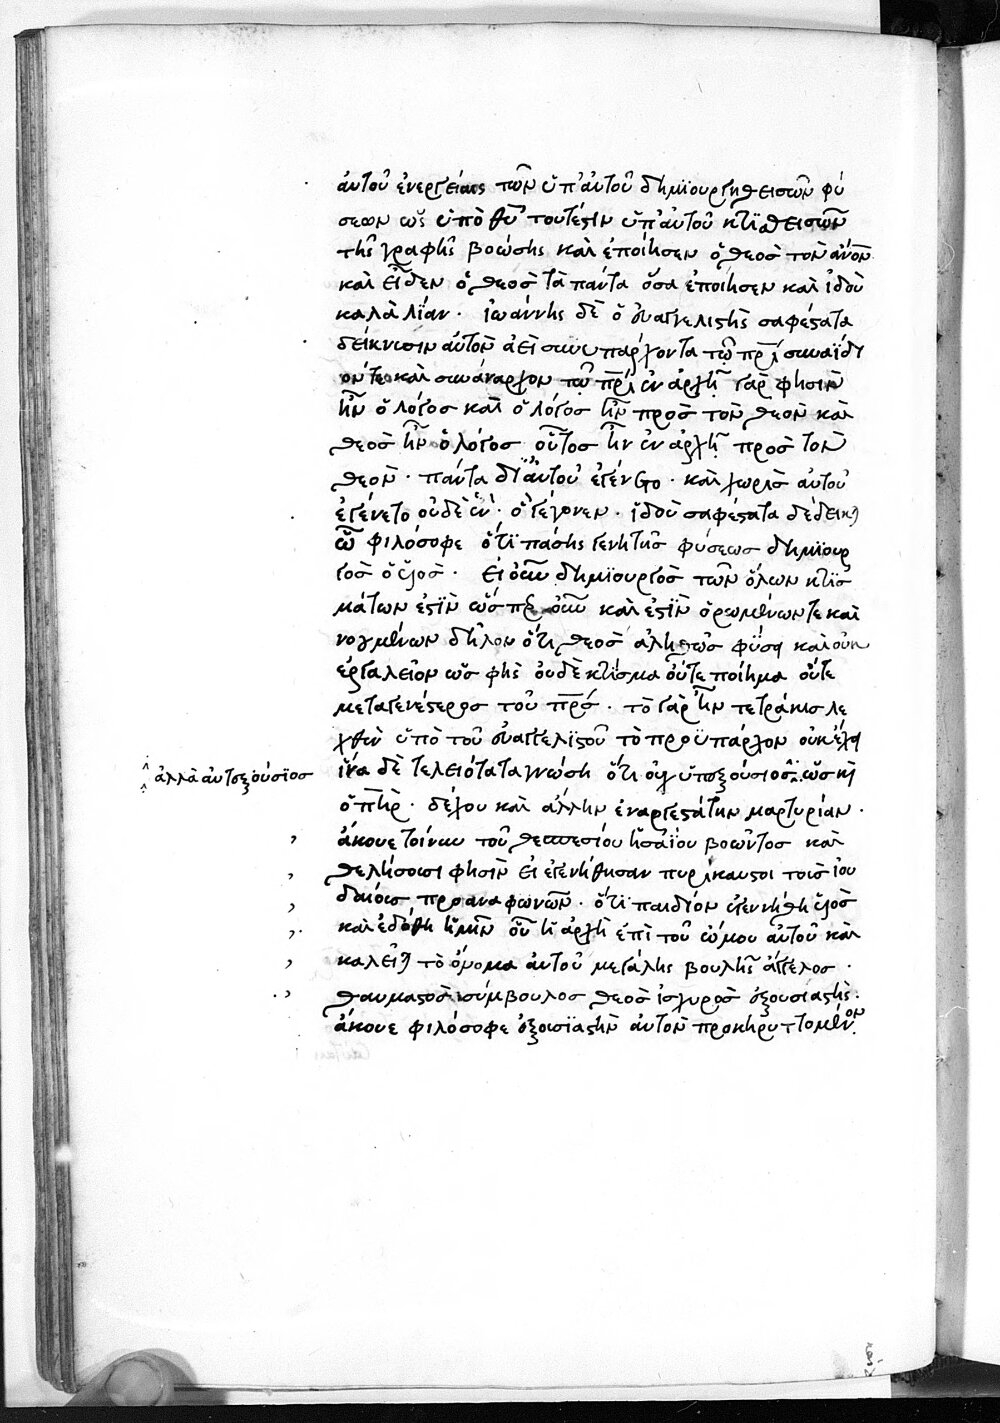 αὐτοῦ ἐνεργείαις τῶν ὑπ' αὐτοῦ δημϊουργηθεισῶν φύ
σεων ὡς ὑπὸ θῦ τουτέστιν ὑπ' αὐτοῦ κτϊσθεισῶν
τῆς γραφῆς βοώσης καὶ ἐποίησεν ὁ θεὸς τὸν ἄνον
καὶ εἶδεν ὁ θεὸς τὰ πάντα ὅσα ἐποίησεν καὶ ἰδοὺ
καλὰ λίαν · ἰωάννης δὲ ὁ εὐαγγελιστὴς σαφέστατα
δείκνυσιν αὐτὸν ἀεὶ συνυπάρχοντα τῷ πρῒ συναΐδι
όν τε καὶ συνάναρχον τῷ πρῒ ἐν ἀρχῇ γάρ φησιν
ἦν ὁ λόγος καὶ ὁ λόγος ἦν πρὸς τὸν θεὸν καὶ
θεὸς ἦν ὁ λόγος οὗτος ἦν ἐν ἀρχῇ πρὸς τὸν
θεὸν · πάντα δι' αὐτοῦ ἐγένετο · καὶ χωρὶς αὐτοῦ
ἐγένετο οὐδὲ ἕν · ὃ γέγονεν · ἰδοὺ σαφέστατα δέδεικται
ὦ φιλόσοφε ὅτϊ πάσης γενητῆς φύσεως δημϊουρ
γὸς ὁ υἱὸς · εἰ οὖν δημϊουργὸς τῶν ὅλων κτϊσ
μάτων ἐστὶν ὥσπερ οὖν καὶ ἐστὶν ὁρωμένων τε καὶ
νοουμένων δῆλον ὅτι θεὸς ἀληθῶς φύσει καὶ οὐκ
ἐργαλεῖον ὡς φῂς οὐδὲ κτίσμα οὔτε ποίημα οὔτε
μεταγενέστερος τοῦ πρσ · τὸ γὰρ ἦν τετράκις λε
χθὲν ὑπὸ τοῦ εὐαγγελϊστοῦ τὸ προϋπάρχον οὐκ ἔχει
ἀλλὰ αὐτεξούσϊος
ἵνα δὲ τελειότατα γνώσῃ ὅτι οὐχ ὑπεξούσιος ὡς καὶ
ὁ πηρ · δέχου καὶ ἄλλην ἐναργεστάτην μαρτυρίαν ·
ἄκουε τοίνυν τοῦ θεσπεσίου ἡσαΐου βοῶντος καὶ
θελήσουσι φησὶν εἰ ἐγενήθησαν πυρίκαυστοι τοῖς ἰου
δαίοις προαναφωνῶν · ὅτϊ παιδίον ἐγεννήθη υἱὸς
καὶ ἐδόθη ἡμῖν οὗ ἡ ἀρχὴ ἐπὶ τοῦ ὤμου αὐτοῦ καὶ
καλεῖται τὸ ὄνομα αὐτοῦ μεγάλης βουλῆς ἄγγελος ·
θαυμαστὸς σύμβουλος θεὸς ἰσχυρὸς ἐξουσιαστὴς ·
ἄκουε φιλόσοφε ἐξουσϊαστὴν αὐτὸν προκηρυττόμενον